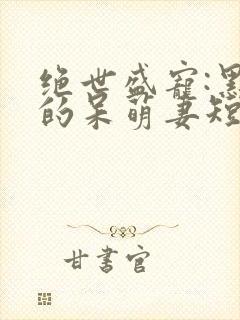 绝世盛宠:黑
的呆萌妻短
甘書官